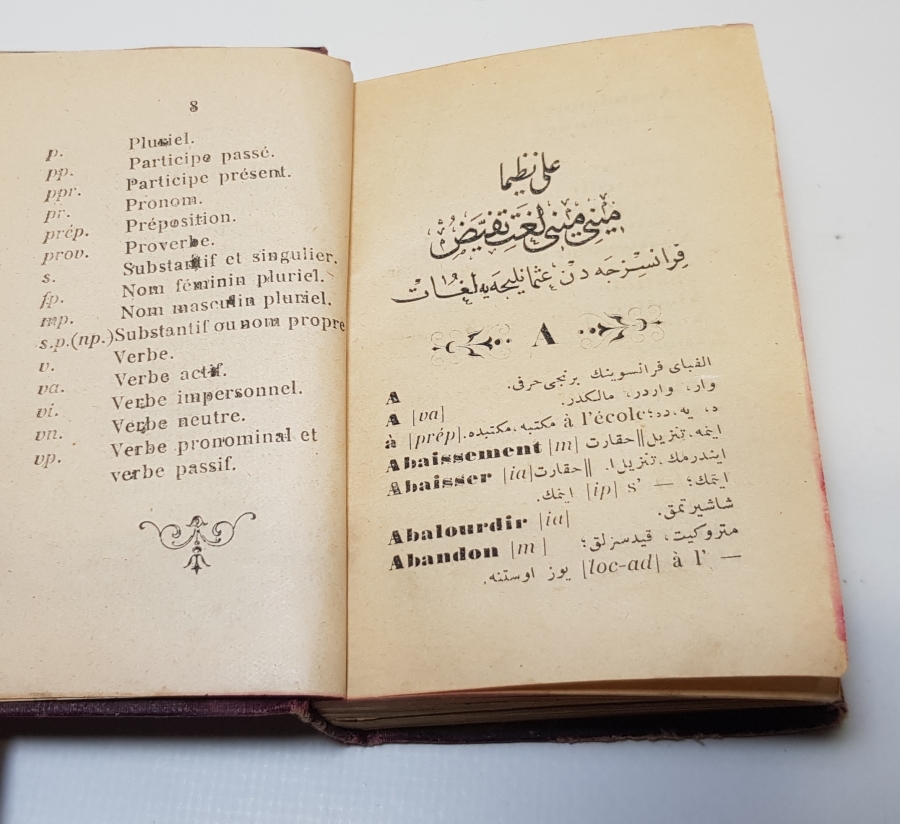 8
p. Pluriel.
pp. Participe passé.
ppr. Participe présent.
pr. Pronom.
prép. Préposition.
prov. Proverbe.
s. Substantif et singulier.
fp. Nom féminin pluriel.
mp. Nom masculin pluriel.
s.p.(np.) Substantif ou nom propre
v. Verbe.
va. Verbe actif.
vi. Verbe impersonnel.
vn. Verbe neutre.
vp. Verbe pronominal et
verbe passif.
علی نظیما
مینی مینی لغت تفیّض
فرانسزجه دن عثمانلیجه یه لغات
A
A الفبای فرانسوینك برنجی حرفی.
A |va| وار، واردر، مالكدر.
à |prép| ده، یه، ده؛ à l'école مكتبه، مكتبده.
Abaissement |m| اینمه، تنزیل || حقارت
Abaisser |ia| ایندرمك، تنزیل || حقارت
ایتمك؛ — s' |ip| اینمك.
Abalourdir |ia| شاشیرتمق.
Abandon |m| متروكیت، قیدسزلق؛
— à l' |loc-ad| یوز اوستنه.